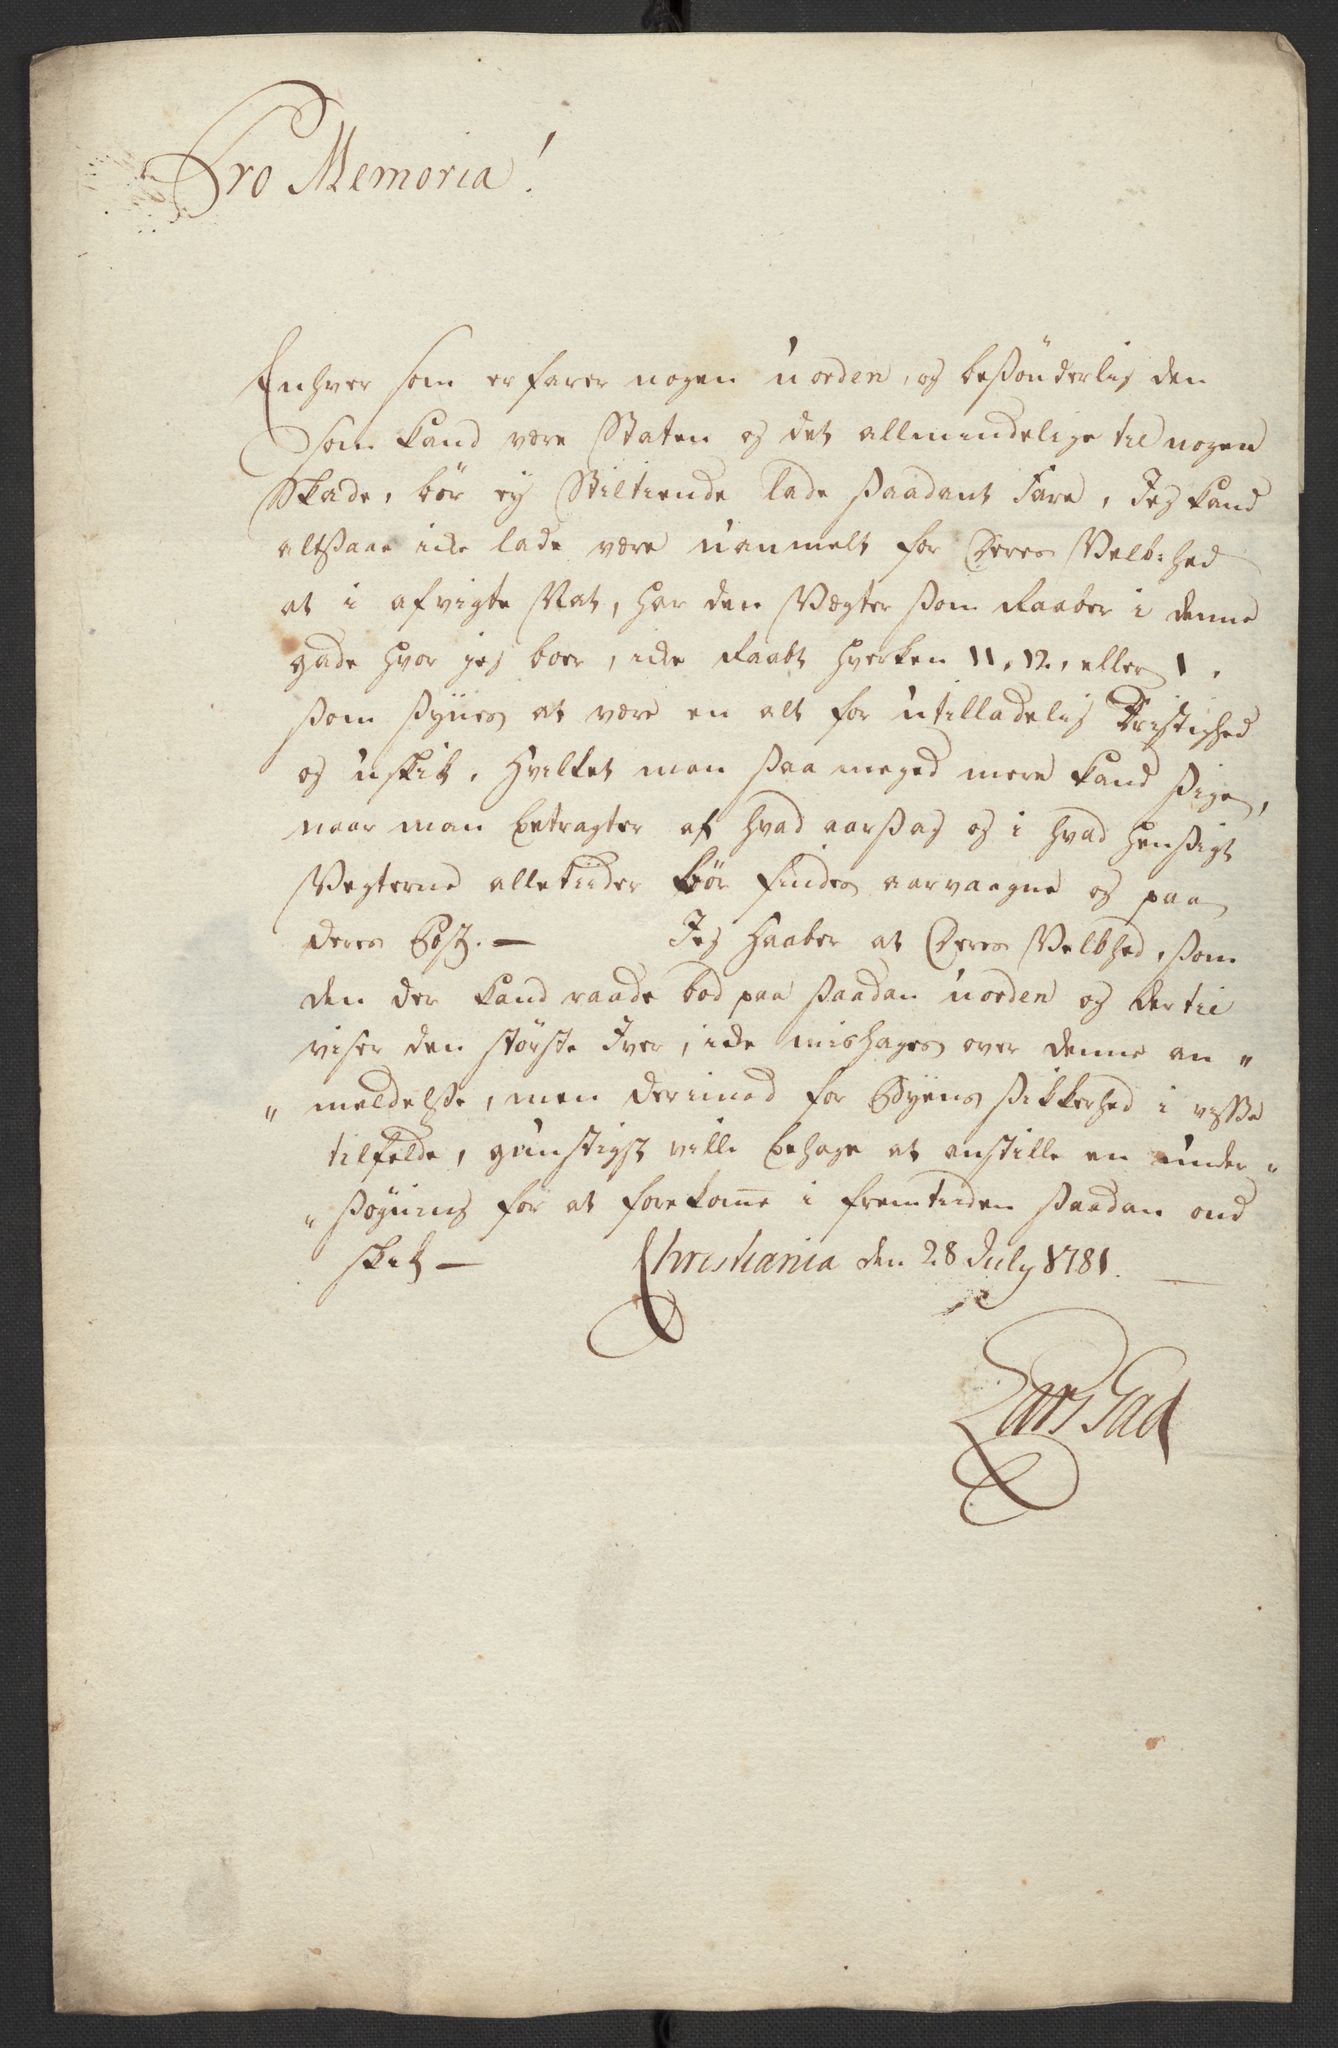 Pro Memoria!
Enhver som erfarer nogen uorden, og besønderlig den
som kand være Staten og det allmindelige til nogen
Skade, bør ey Stiltiende lade saadant Fare, Jeg kand
altsaa icke lade være uanmelt for Deres Velb:hed
at i afvigte Nat, har den Vægter som Raaber i denne
gade hvor jeg boer, icke Raabt hverken 11, 12, eller 1,
som synes at være en alt for utilladelig Dristighed
og uskik, hvilket man saa meged mere kand sige,
naar man betragter af hvad aarsag og i hvad hensigt
Vegterne alletiider bør findes aarvaagne og paa
deres Post. — Jeg Haaber at Deres Velbhed, som
den der kand raade bod paa saadan uorden og dertil
viser den største Iver, icke mishages over denne an„
„meldelse, men derimod for Byens sikkerhed i visse
tilfelde, gunstigst ville behage at anstille en under„
„søgning for at forekome i fremtiiden saadan ond
skik — Christiania den 28 July 1781.
Lars Gad